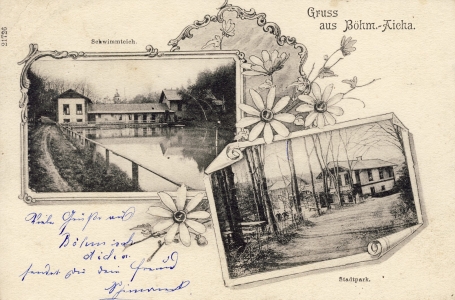 Gruss
aus Böhm.-Aicha.
Schwimmteich.
21726
Stadtpark.
Viele Grüße aus
Böhmisch
Aicha
sendet dir dein Freund